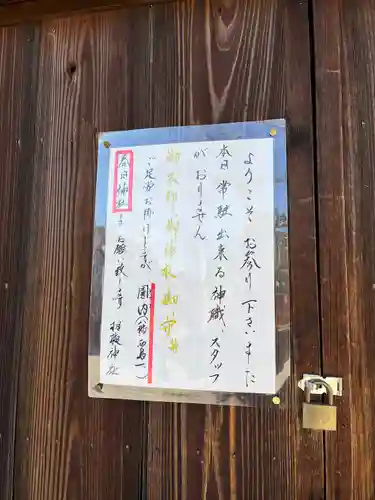 ようこそ お参り下さいました
本日常駐出来る神職、スタッフ
がおりません
御朱印、御神札、御守等
ご足労お掛けしますが 園内
春日神社までお願い致します
神社